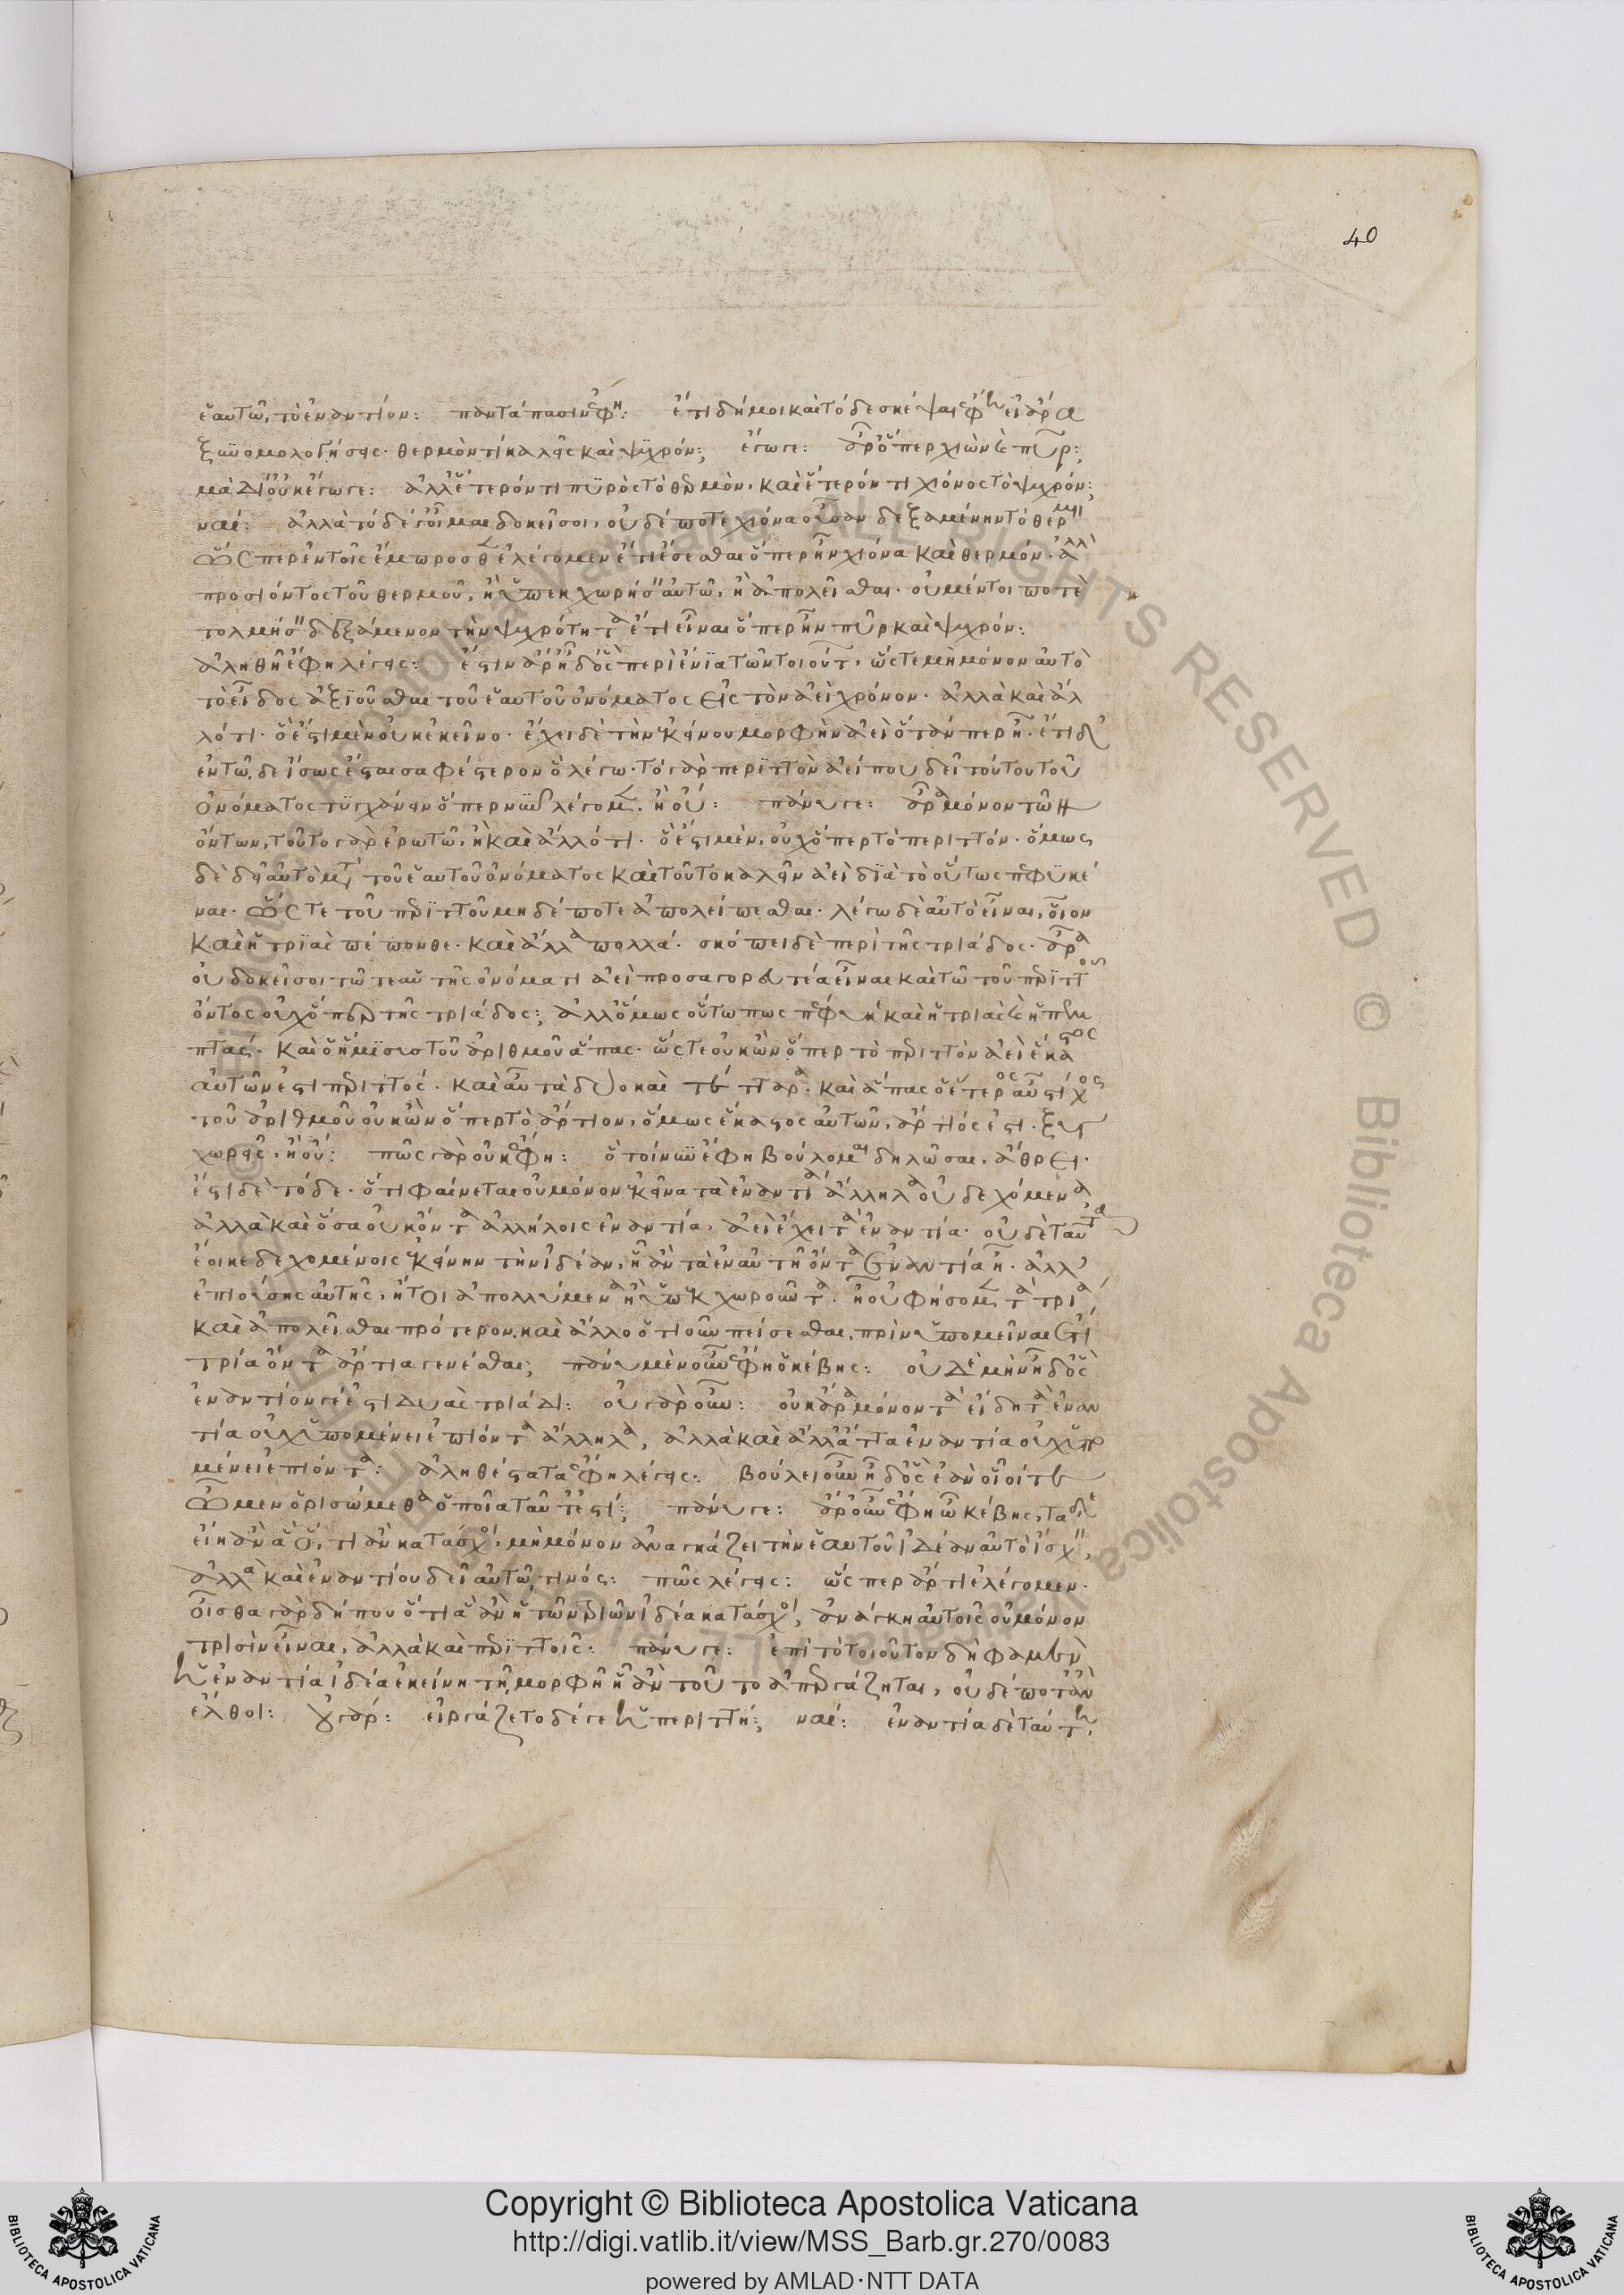 40
ἑαυτῶ, τὸ ἐναντίον: πανταπασιν ἔφη: ἔτι δή μοι καὶ τόδε σκέψαι ἔφη εἰ ἄρα
ξυνομολογήσεις· θερμόν τι καλεῖς καὶ ψυχρόν; ἔγωγε: ἆρ' ὅπερ χιόνα καὶ πῦρ;
μὰ Δί' οὐκ ἔγωγε: ἀλλ' ἕτερόν τι πυρὸς τὸ θερμόν. καὶ ἕτερόν τι χιόνος τὸ ψυχρόν;
ναί: ἀλλὰ τόδέ γ' οἶμαι δοκεῖ σοι, οὐδέποτε χιόνα οὖσαν δεξαμένην τὸ θερμὸν
ὥσπερ ἐν τοῖς ἔμπροσθεν ἐλέγομεν ἔτι ἔσεσθαι ὅπερ ἦν χιόνα καὶ θερμόν. ἀλλὰ
προσιόντος τοῦ θερμοῦ, ἢ ὑπεκχωρήσειν αὐτῶ, ἢ ἀπολεῖσθαι. οὐ μέντοι ποτὲ
τολμήσειν δεξάμενον τὴν ψυχρότητα ἔτι εἶναι ὅπερ ἦν πῦρ καὶ ψυχρόν:
ἀληθῆ ἔφη λέγεις: ἔστιν ἄρα ἦ δ' ὃς περὶ ἔνια τῶν τοιούτων, ὥστε μὴ μόνον αὐτὸ
τὸ εἶδος ἀξιοῦσθαι τοῦ ἑαυτοῦ ὀνόματος εἰς τὸν ἀεὶ χρόνον. ἀλλὰ καὶ ἄλ
λό τι· ὃ ἔστι μὲν οὐκ ἐκεῖνο· ἔχει δὲ τὴν ἐκείνου μορφὴν ἀεὶ ὅταν περ ἦ. ἔτι δ'
ἐν τῶδε ἴσως ἔσται σαφέστερον ὃ λέγω. τὸ γὰρ περιττὸν ἀεί που δεῖ τούτου τοῦ
ὀνόματος τυγχάνειν ὅπερ νῦν λέγομεν. ἢ οὔ: πάνυ γε: ἆρα μόνον τῶν
ὄντων, τοῦτο γὰρ ἐρωτῶ, ἢ καὶ ἄλλό τι. ὃ ἔστι μὲν, οὐχ ὅπερ τὸ περιττόν. ὅμως
δὲ δεῖ αὐτὸ μετὰ τοῦ ἑαυτοῦ ὀνόματος καὶ τοῦτο καλεῖν ἀεὶ διὰ τὸ οὕτως πεφυκέ
ναι. ὥστε τοῦ περιττοῦ μηδέποτε ἀπολείπεσθαι. λέγω δὲ αὐτὸ εἶναι, οἷον
καὶ ἡ τριὰς πέπονθε. καὶ ἄλλα πολλά. σκόπει δὲ περὶ τῆς τριάδος. ἆρα
οὐ δοκεῖ σοι τῶ τε αὑτῆς ὀνόματι ἀεὶ προσαγορευτέα εἶναι καὶ τῶ τοῦ περιττοῦ
ὄντος οὐχ ὅπερ τῆς τριάδος; ἀλλ' ὅμως οὕτω πως πέφυκε καὶ ἡ τριὰς καὶ ἡ πεμ
πτάς. καὶ ὁ ἥμισυς τοῦ ἀριθμοῦ ἅπας. ὥστε οὐκ ὢν ὅπερ τὸ περιττὸν ἀεὶ ἕκαστος
αὐτῶν ἐστι περιττός. καὶ αὖ τὰ δύο καὶ τὰ τέτταρα. καὶ ἅπας ὁ ἕτερος αὖ στίχος
τοῦ ἀριθμοῦ οὐκ ὢν ὅπερ τὸ ἄρτιον, ὅμως ἕκαστος αὐτῶν, ἄρτιός ἐστι. ξυγ
χωρεῖς, ἢ οὔ: πῶς γὰρ οὐκ ἔφη: ὃ τοίνυν ἔφη βούλομαι δηλῶσαι, ἄθρει.
ἔστι δὲ τόδε. ὅτι φαίνεται οὐ μόνον ἐκεῖνα τὰ ἐναντία ἄλληλα οὐ δεχόμενα
ἀλλὰ καὶ ὅσα οὐκ ὄντα ἀλλήλοις ἐναντία, ἀεὶ ἔχει τἀναντία. οὐδὲ ταῦτα
ἔοικε δεχομένοις ἐκείνην τὴν ἰδέαν, ἣ ἂν τὰ ἐν αὐτῆ ὄντα ἐναντία ἦ. ἀλλ'
ἐπιούσης αὐτῆς, ἤτοι ἀπολλύμενα ἢ ὑπεκχωροῦντα. ἢ οὐ φήσομεν τὰ τρία
καὶ ἀπολεῖσθαι πρότερον, καὶ ἄλλο ὁτιοῦν πείσεσθαι, πρὶν ὑπομεῖναι ἔτι
τρία ὄντα ἄρτια γενέσθαι; πάνυ μὲν οὖν ἔφη ὁ κέβης: οὐδὲ μὴν ἦ δ' ὃς
ἐναντίον γέ ἐστι δυὰς τριάδι: οὐ γὰρ οὖν: οὐκ ἄρα μόνον τὰ εἴδη τὰ ἐναν
τία οὐχ ὑπομένει ἐπιόντα ἄλληλα, ἀλλὰ καὶ ἄλλ' ἄττα ἐναντία οὐχ ὑπο
μένει ἐπιόντα: ἀληθέστατα ἔφη λέγεις: βούλει οὖν ἦ δ' ὃς ἐὰν οἷοί τε
ὦμεν ὁρισώμεθα ὁποῖα ταῦτ' ἐστί; πάνυ γε: ἆρ' οὖν ἔφη ὦ κέβης, τάδε
εἴη ἂν ἃ ὅ, τι ἂν κατάσχοι, μὴ μόνον ἀναγκάζει τὴν ἑαυτοῦ ἰδέαν αὐτὸ ἴσχειν,
ἀλλὰ καὶ ἐναντίου δεῖ αὐτῶ τινός: πῶς λέγεις: ὥσπερ ἄρτι ἐλέγομεν.
οἶσθα γὰρ δήπου ὅτι ἃ ἂν ἡ τῶν τριῶν ἰδέα κατάσχοι, ἀνάγκη αὐτοῖς οὐ μόνον
τρισὶν εἶναι, ἀλλὰ καὶ περιττοῖς: πάνυ γε: ἐπὶ τὸ τοιοῦτον δὴ φαμὲν
ἡ ἐναντία ἰδέα ἐκείνη τῆ μορφῆ ἣ ἂν τοῦτο ἀπεργάζηται, οὐδέποτ' ἂν
ἔλθοι: οὐ γάρ: εἰργάζετο δέ γε ἡ περιττή; ναί: ἐναντία δὲ ταύτη,
Copyright © Biblioteca Apostolica Vaticana
http://digi.vatlib.it/view/MSS_Barb.gr.270/0083
powered by AMLAD·NTT DATA